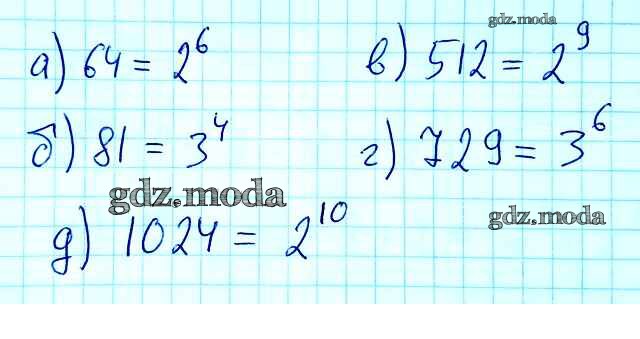 gdz.moda
а) 64 = 2⁶ в) 512 = 2⁹
б) 81 = 3⁴ г) 729 = 3⁶
gdz.moda
gdz.moda
д) 1024 = 2¹⁰